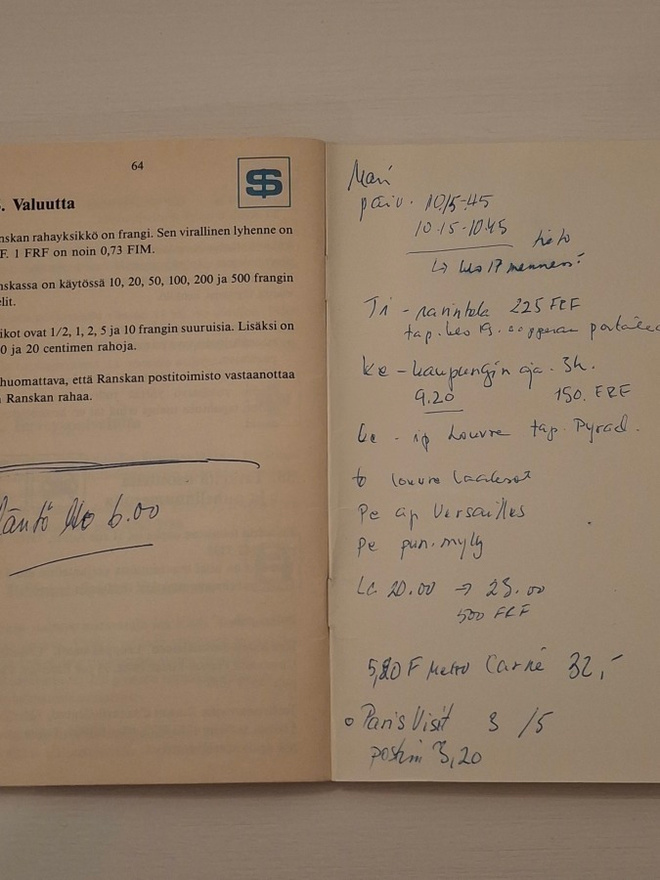 64
S
. Valuutta
nskan rahayksikkö on frangi. Sen virallinen lyhenne on
F. 1 FRF on noin 0,73 FIM.
nskassa on käytössä 10, 20, 50, 100, 200 ja 500 frangin
elit.
ikot ovat 1/2, 1, 2, 5 ja 10 frangin suuruisia. Lisäksi on
0 ja 20 centimen rahoja.
huomattava, että Ranskan postitoimisto vastaanottaa
n Ranskan rahaa.
klo 6.00
Mari
päiv. 10.15-45
10.15-10.45
tieto
↳ klo 17 mennessä
Ti - ravintola 225 FRF
tap. klo 19. oopperan
ke - kaupungin aja. 3h.
9.20 150. FRF
ke - ip Louvre tap. Pyrad.
to louvre
Pe ap Versailles
Pe pun. mylly
La 20.00 → 23.00
500 FRF
F Metro Carné 32,-
o Paris Visit 3 /5
3,20